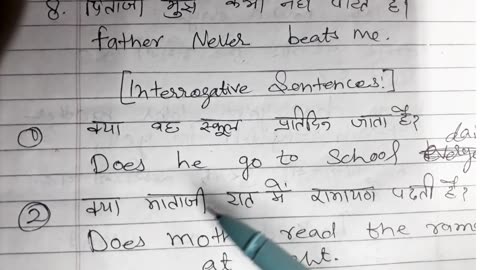 8. पिताजी मुझे कभी नहीं
father Never beats me.
[Interrogative Sentences:]
① क्या वह स्कूल प्रतिदिन जाता है?
Does he go to School dai
② क्या माताजी रात में रामायण पढती है?
Does moth read the rama
at ht.